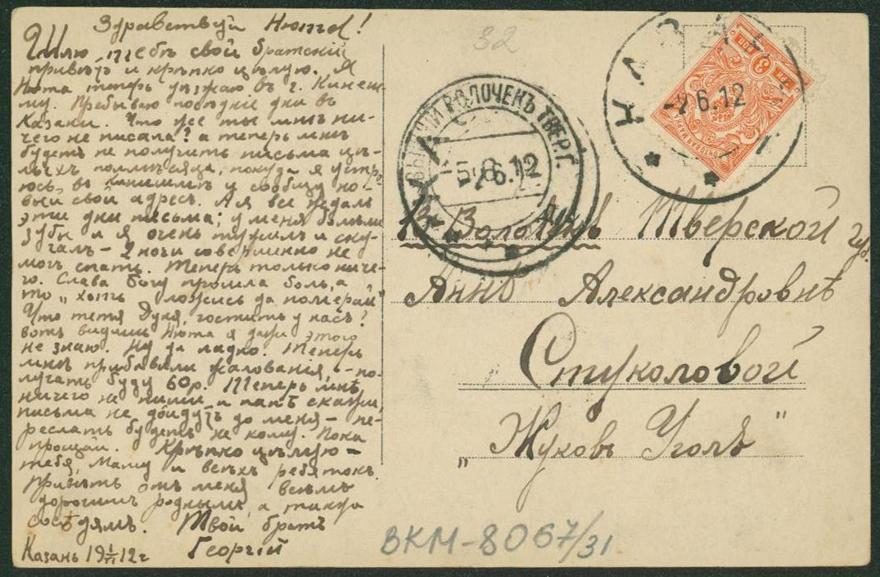 Здравствуй Нюта!
Шлю тебѣ свой братскій
привѣтъ и крѣпко цѣлую. Я
Нюта теперь уѣзжаю въ г. Кинеш-
му. Пребываю послѣдніе дни въ
Казани. Что же ты мнѣ ни-
чего не писала? а теперь мнѣ
будетъ не получить письма цѣ-
лыхъ полмѣсяца, покуда я устр-
юсь въ Кинешмѣ и сообщу но-
вый свой адресъ. А я все ждалъ
эти дни письма; у меня
зубы и я очень тужилъ и ску-
чалъ - 2 ночи совершенно не
могъ спать. Теперь только ниче-
го. Слава Богу прошла боль, а
то „хоть ложись да помирай"
Что тетя Дуня, гостить у васъ?
вотъ видишь Нюта я даже этого
не знаю. Ну да ладно. Теперь
мнѣ прибавили жалованія, - по-
лучать буду 60 р. Теперь мнѣ
ничего не пиши и папѣ скажи,
письма не дойдутъ до меня - пе-
реслать будетъ не кому. Пока
прощай. Крѣпко цѣлую -
тебя, Маму и всѣхъ ребятокъ.
Привѣтъ отъ меня всѣмъ
дорогимъ роднымъ, а также
сосѣдямъ. Твой братъ
Георгій
Казань 19 1/VI 12 г
32
КАЗАНЬ
-2 6.12
ВЫШНІЙ ВОЛОЧЕКЪ ТВЕР. Г.
-5.6.12
В. Волочекъ Тверской гу.
Аннѣ Александровнѣ
Стуколовой
„Жуковъ Уголъ"
ВКМ-8067/31